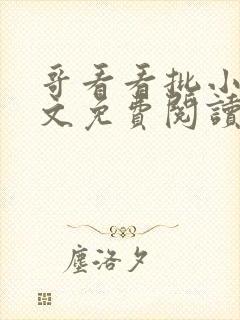 哥看看批小
文免費閱讀
塵洛夕